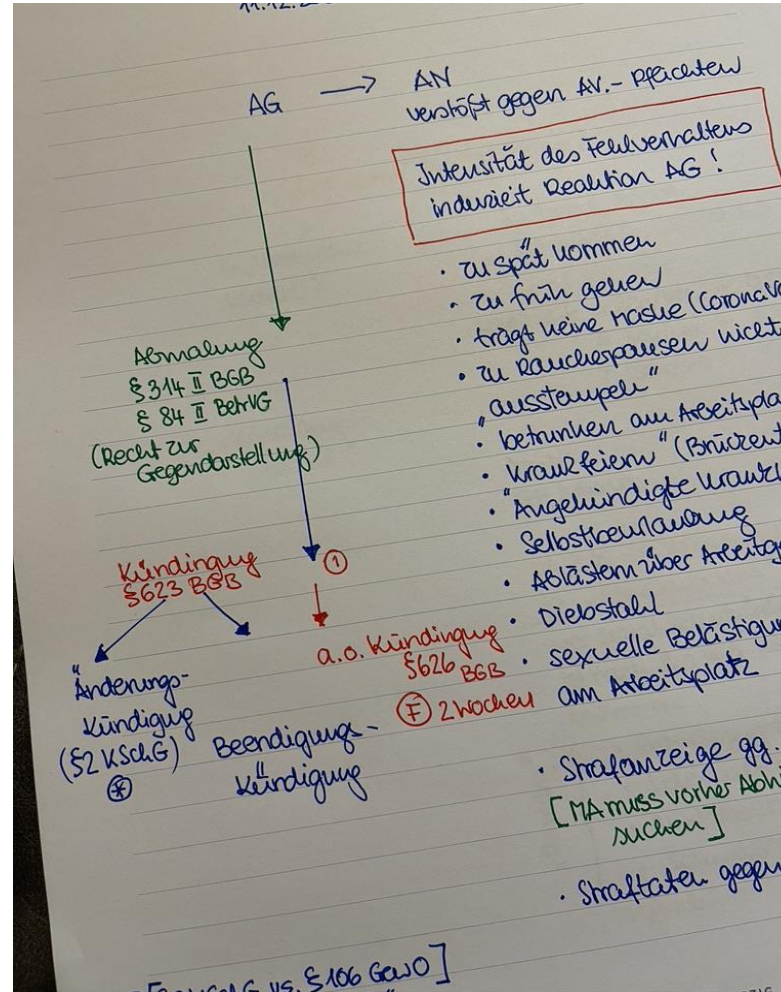 11.12.2
AG → AN
verstößt gegen AV.-Pflichten
Intensität des Fehlverhaltens
induziert Reaktion AG!
· zu spät kommen
· zu früh gehen
· trägt keine Maske (Corona
· zu Raucherpausen nicht
"ausstempeln"
· betrunken am Arbeitspla
· Krankfeiern" (Brücken
· "Angekündigte Krank
· Selbstbeurlaubung
· Ablästern über Arbeitg
· Diebstahl
· sexuelle Belästigu
am Arbeitsplatz
· Strafanzeige gg.
[MA muss vorher Abhi
suchen]
· Straftaten gegen
Abmahnung
§ 314 II BGB
§ 84 II BetrVG
(Recht zur
Gegendarstellung)
Kündingug
§623 BGB
①
a.o. Kündingug
§626 BGB
Ⓕ 2 Wochen
Änderungs-
Kündigug
(§2 KSchG)
⊛
Beendigungs-
kündigung
vs. § 106 GewO]